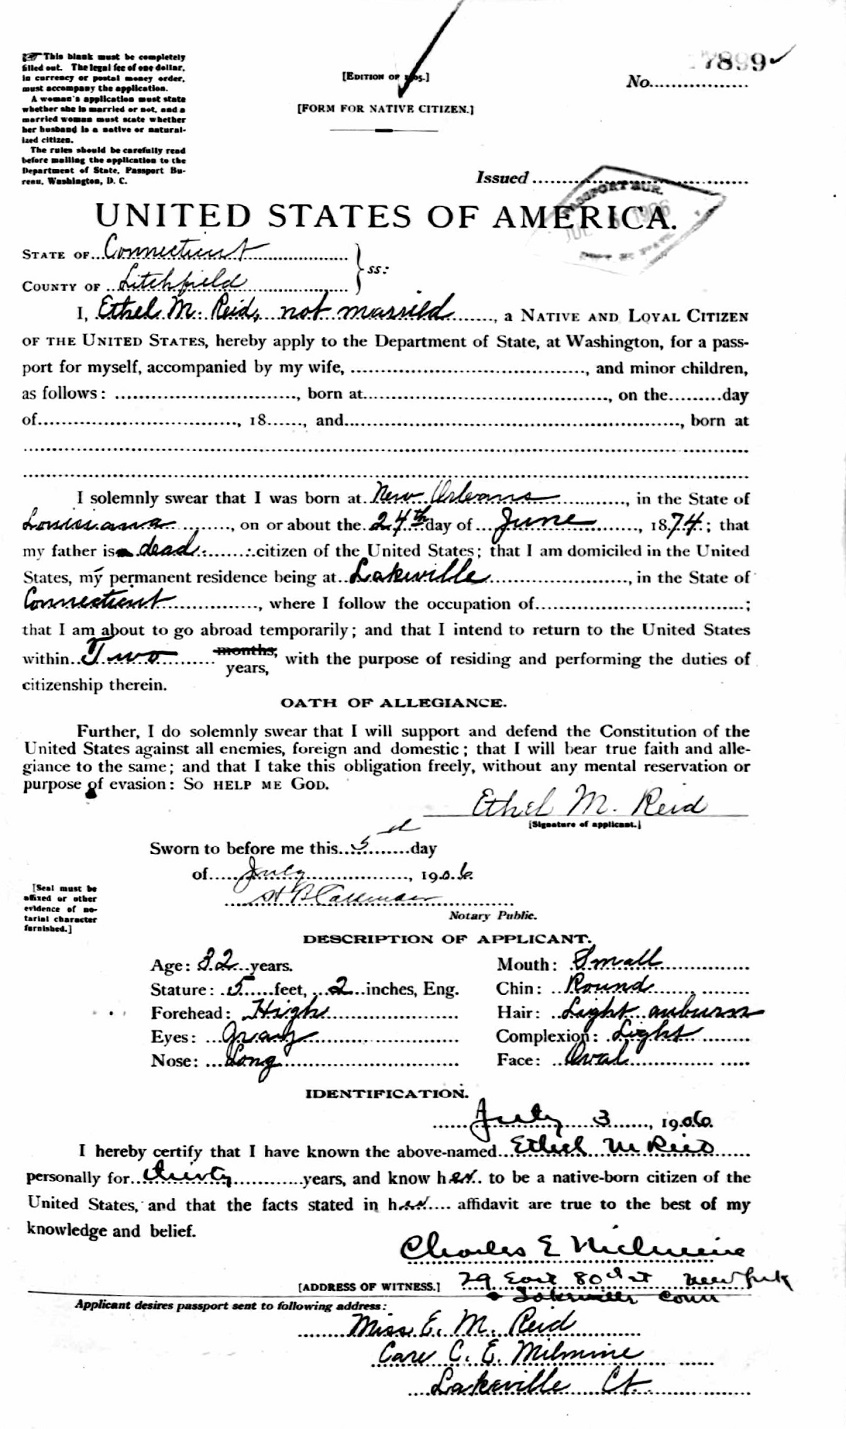 ☞ This blank must be completely
filled out. The legal fee of one dollar,
in currency or postal money order,
must accompany the application.
A woman's application must state
whether she is married or not, and a
married woman must state whether
her husband is a native or natural-
ized citizen.
The rules should be carefully read
before mailing the application to the
Department of State, Passport Bu-
reau, Washington, D. C.
[EDITION OF
[FORM FOR NATIVE CITIZEN.]
No. 7899
Issued
PASSPORT BUR.
UNITED STATES OF AMERICA.
STATE OF Connecticut
COUNTY OF Litchfield
ss:
I, Ethel M. Reid, not married, a NATIVE AND LOYAL CITIZEN
OF THE UNITED STATES, hereby apply to the Department of State, at Washington, for a pass-
port for myself, accompanied by my wife, ................, and minor children,
as follows: ................, born at ................, on the ........ day
of ................, 18......, and ................, born at
I solemnly swear that I was born at New Orleans, in the State of
Louisiana, on or about the 24th day of June, 1874; that
my father is dead citizen of the United States; that I am domiciled in the United
States, my permanent residence being at Lakeville, in the State of
Connecticut, where I follow the occupation of ................;
that I am about to go abroad temporarily; and that I intend to return to the United States
within Two months, years, with the purpose of residing and performing the duties of
citizenship therein.
OATH OF ALLEGIANCE.
Further, I do solemnly swear that I will support and defend the Constitution of the
United States against all enemies, foreign and domestic; that I will bear true faith and alle-
giance to the same; and that I take this obligation freely, without any mental reservation or
purpose of evasion: SO HELP ME GOD.
Ethel M. Reid
[Signature of applicant.]
Sworn to before me this 5 day
of July, 1906
Notary Public.
[Seal must be
affixed or other
evidence of no-
tarial character
furnished.]
DESCRIPTION OF APPLICANT.
Age: 32 years.
Stature: 5 feet, 2 inches, Eng.
Forehead: High
Eyes: Gray
Nose: Long
Mouth: Small
Chin: Round
Hair: Light auburn
Complexion: Light
Face: Oval
IDENTIFICATION.
July 3, 1906
I hereby certify that I have known the above-named Ethel M Reid
personally for thirty years, and know her to be a native-born citizen of the
United States, and that the facts stated in her affidavit are true to the best of my
knowledge and belief.
Charles E Milmine
[ADDRESS OF WITNESS.] 29 East 80th st New York
+ Lakeville Conn
Applicant desires passport sent to following address:
Miss E. M. Reid
Care C. E. Milmine
Lakeville Ct.